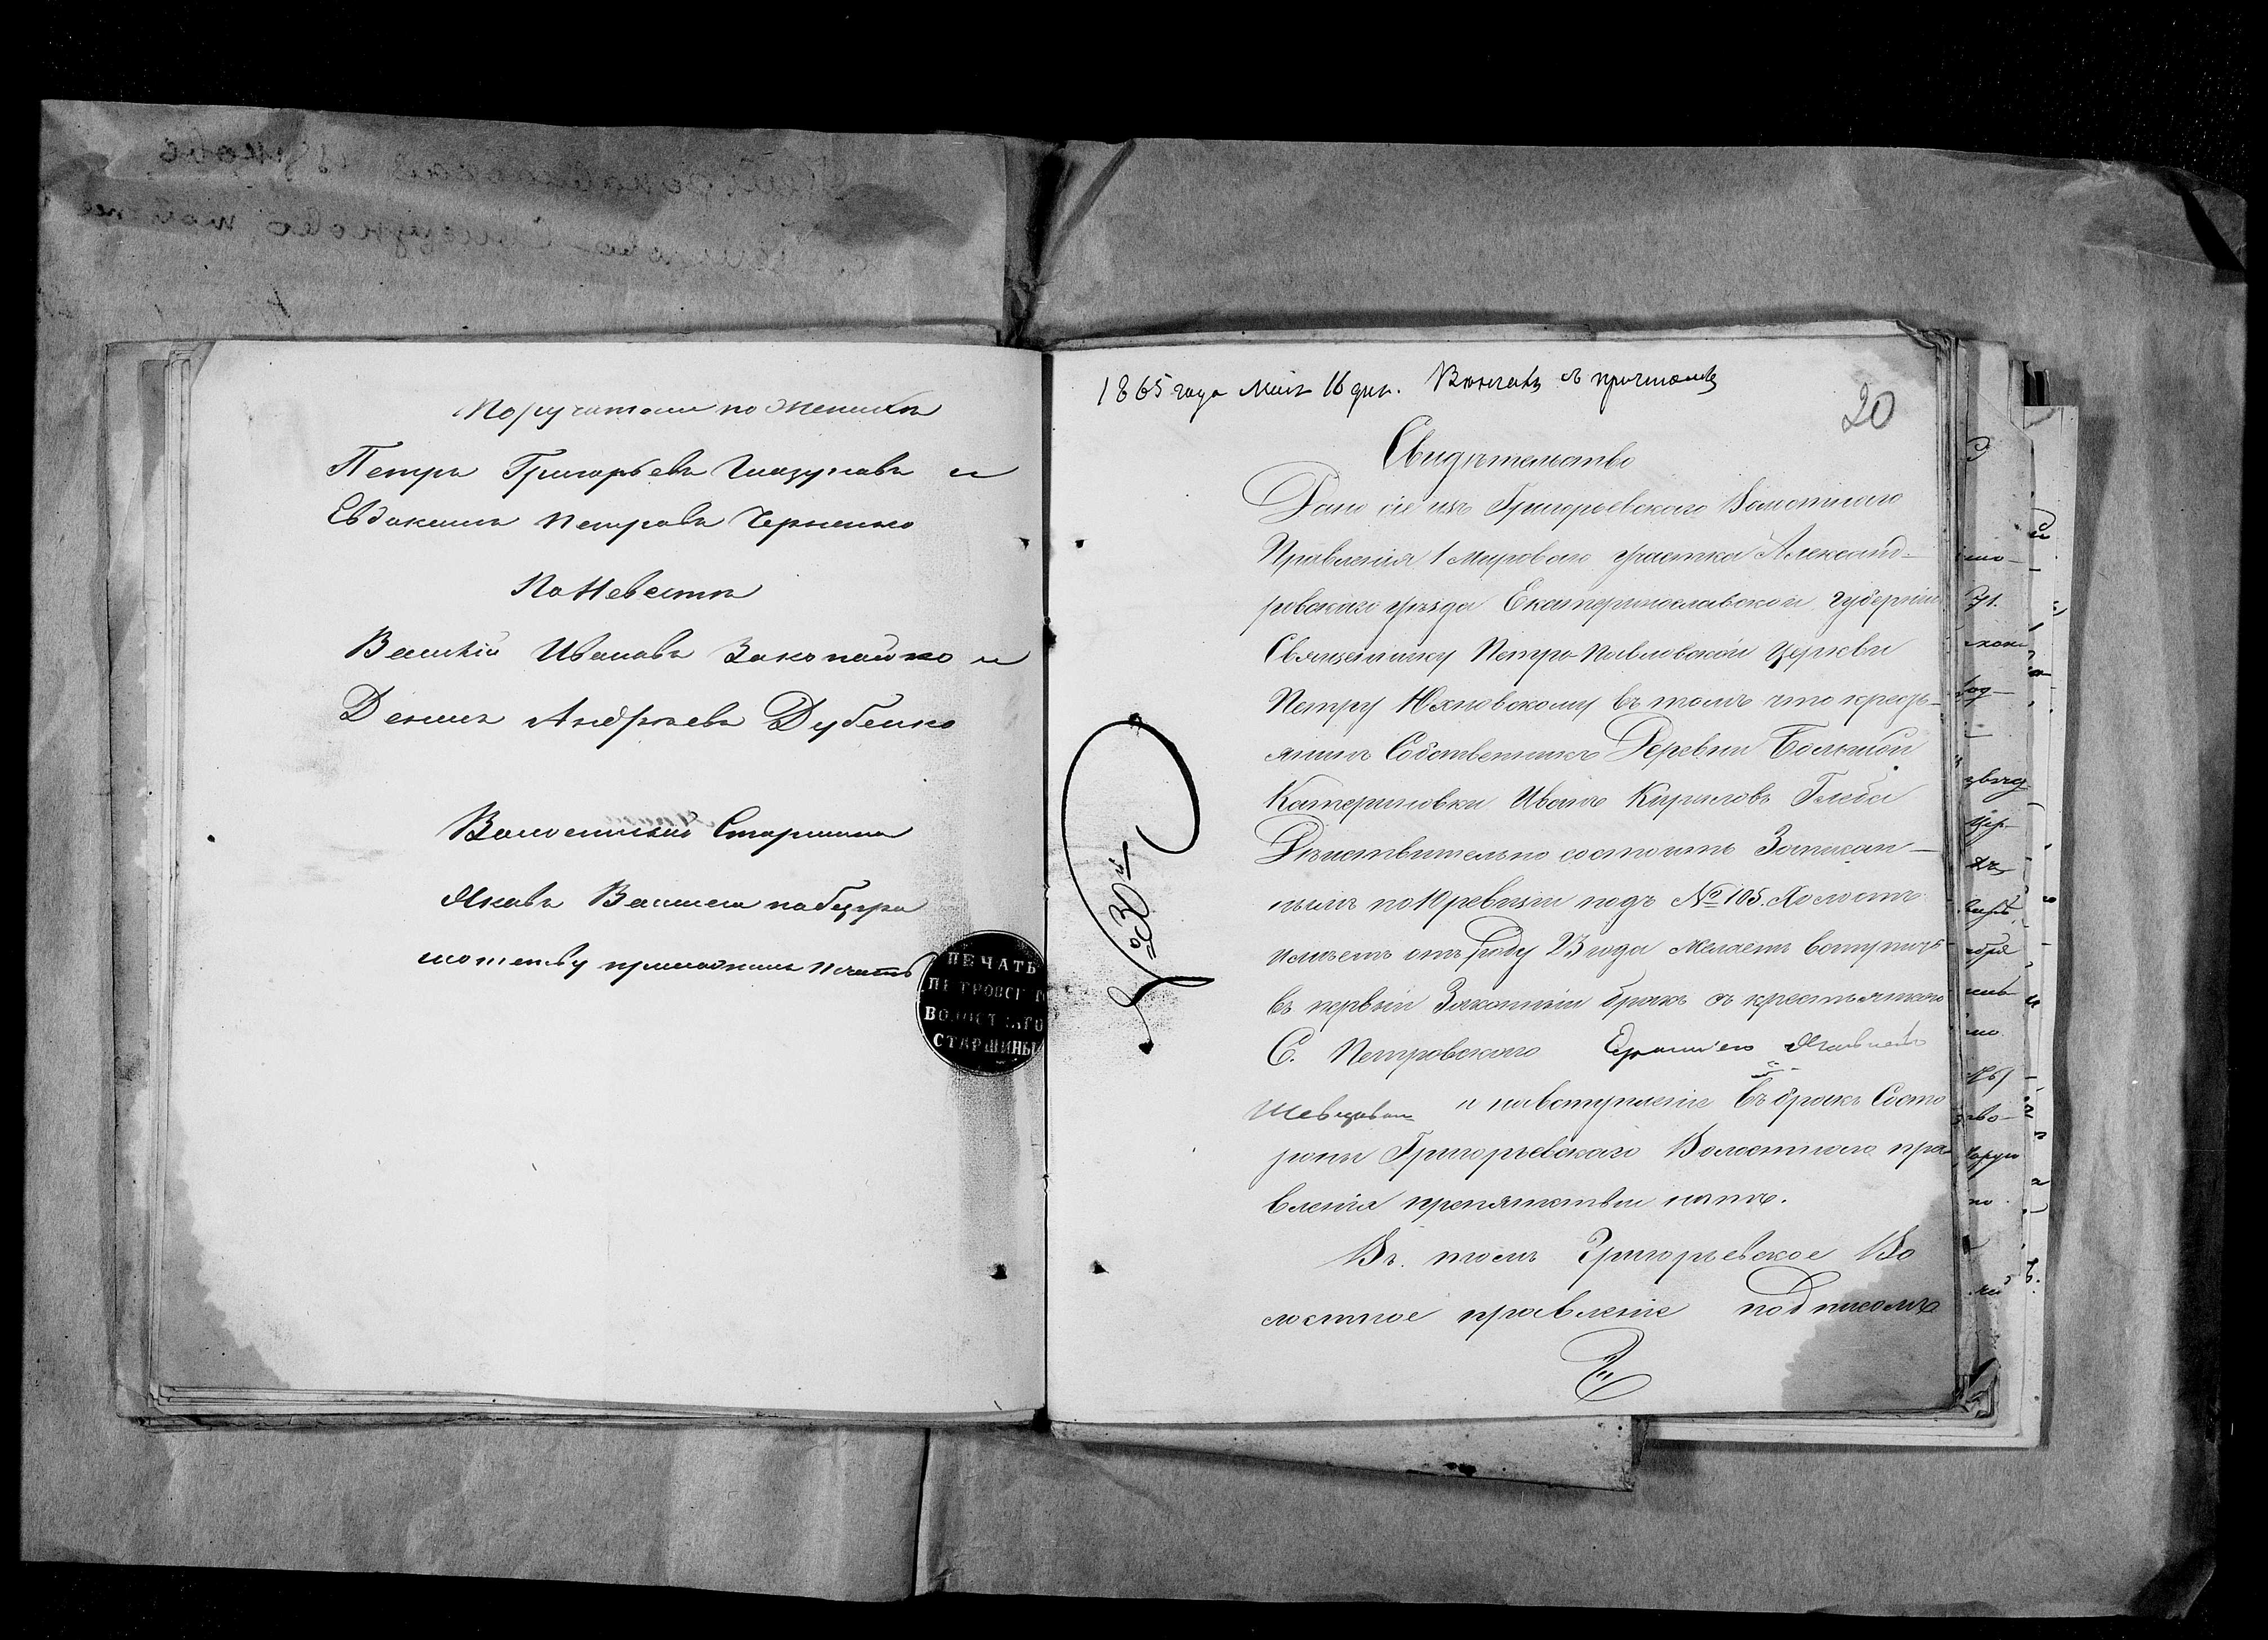 Поручатели по Женихѣ
Петръ Григорьевъ Глазуновъ и
Евдокимъ Петровъ Черненко
По Невестѣ
Василій Ивановъ Закопайко и
Денисъ Андрѣевъ Дубенко
Волостный Старшина
Яковъ а по безгра
мотству приложилъ печать
ПЕЧАТЬ
ПЕТРОВСКАГО
ВОЛОСТНАГО
СТАРШИНЫ
1865 года Мая 16 дня. Вѣнчанъ съ причтомъ
20
Свидѣтельство
Дано сіе изъ Григорьевскаго Волостнаго
Правленія 1 Мироваго участка Александ-
ровскаго уѣзда Екатеринославской губерніи
Священнику Петро-Павловской Церкви
Петру Яхновскому въ томъ что кресть-
янинъ Собственникъ Деревни Большой
Катериновки Иванъ Кириловъ Глеба
Дѣйствительно состоитъ Записан-
нымъ по 10 ревизіи подъ № 105. Холостъ
имѣетъ отъ роду 23 года желаетъ вступить
въ первый Законный бракъ съ крестьянкою
С. Петровскаго
Шевцовой и на вступленіе въ бракъ Состо
роны Григорьевскаго Волостнаго пра-
вленія препятствій нѣтъ.
Въ томъ Григорьевское Во
лостное правленіе подписомъ
№ 30й